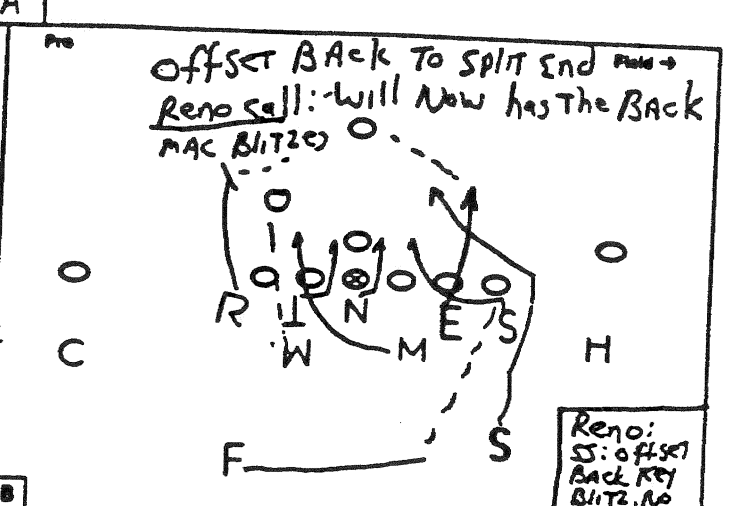 A
Pre
OffSET BACK To SPliT End Field →
Reno Call: Will Now has The BACK
MAC BliTzes
R T N E S
C W M H
F S
Reno:
SS: offset
BACK KEY
BliTZ. No
B